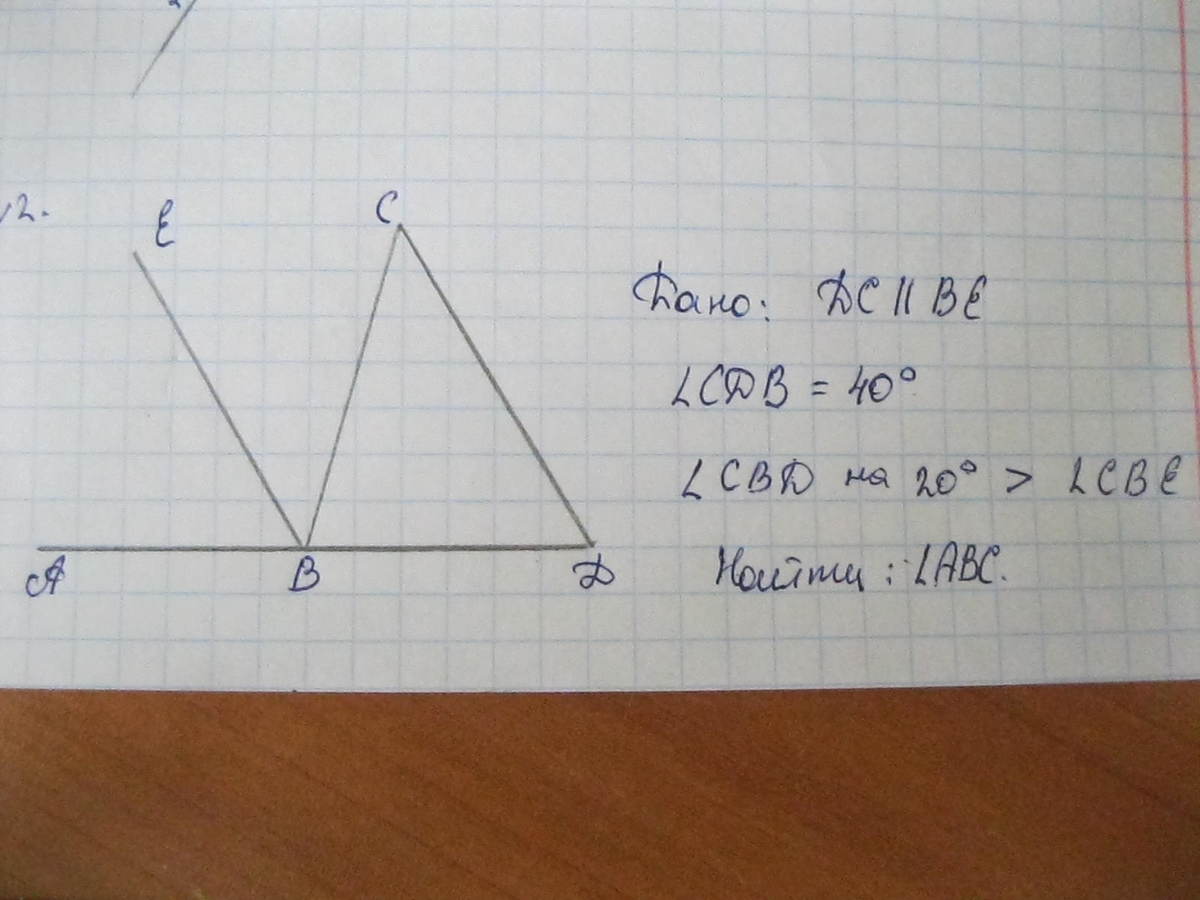 12.
E
C
Дано: DC || BE
∠CDB = 40°
∠CBD на 20° > ∠CBE
Найти: ∠ABC.
A
B
D